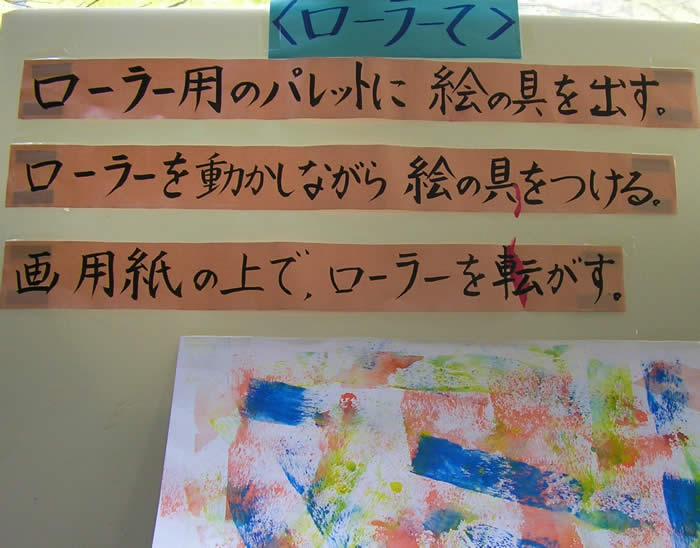 〈ローラーて〉
ローラー用のパレットに 絵の具を出す。
ローラーを動かしながら 絵の具をつける。
画用紙の上で，ローラーを転がす。